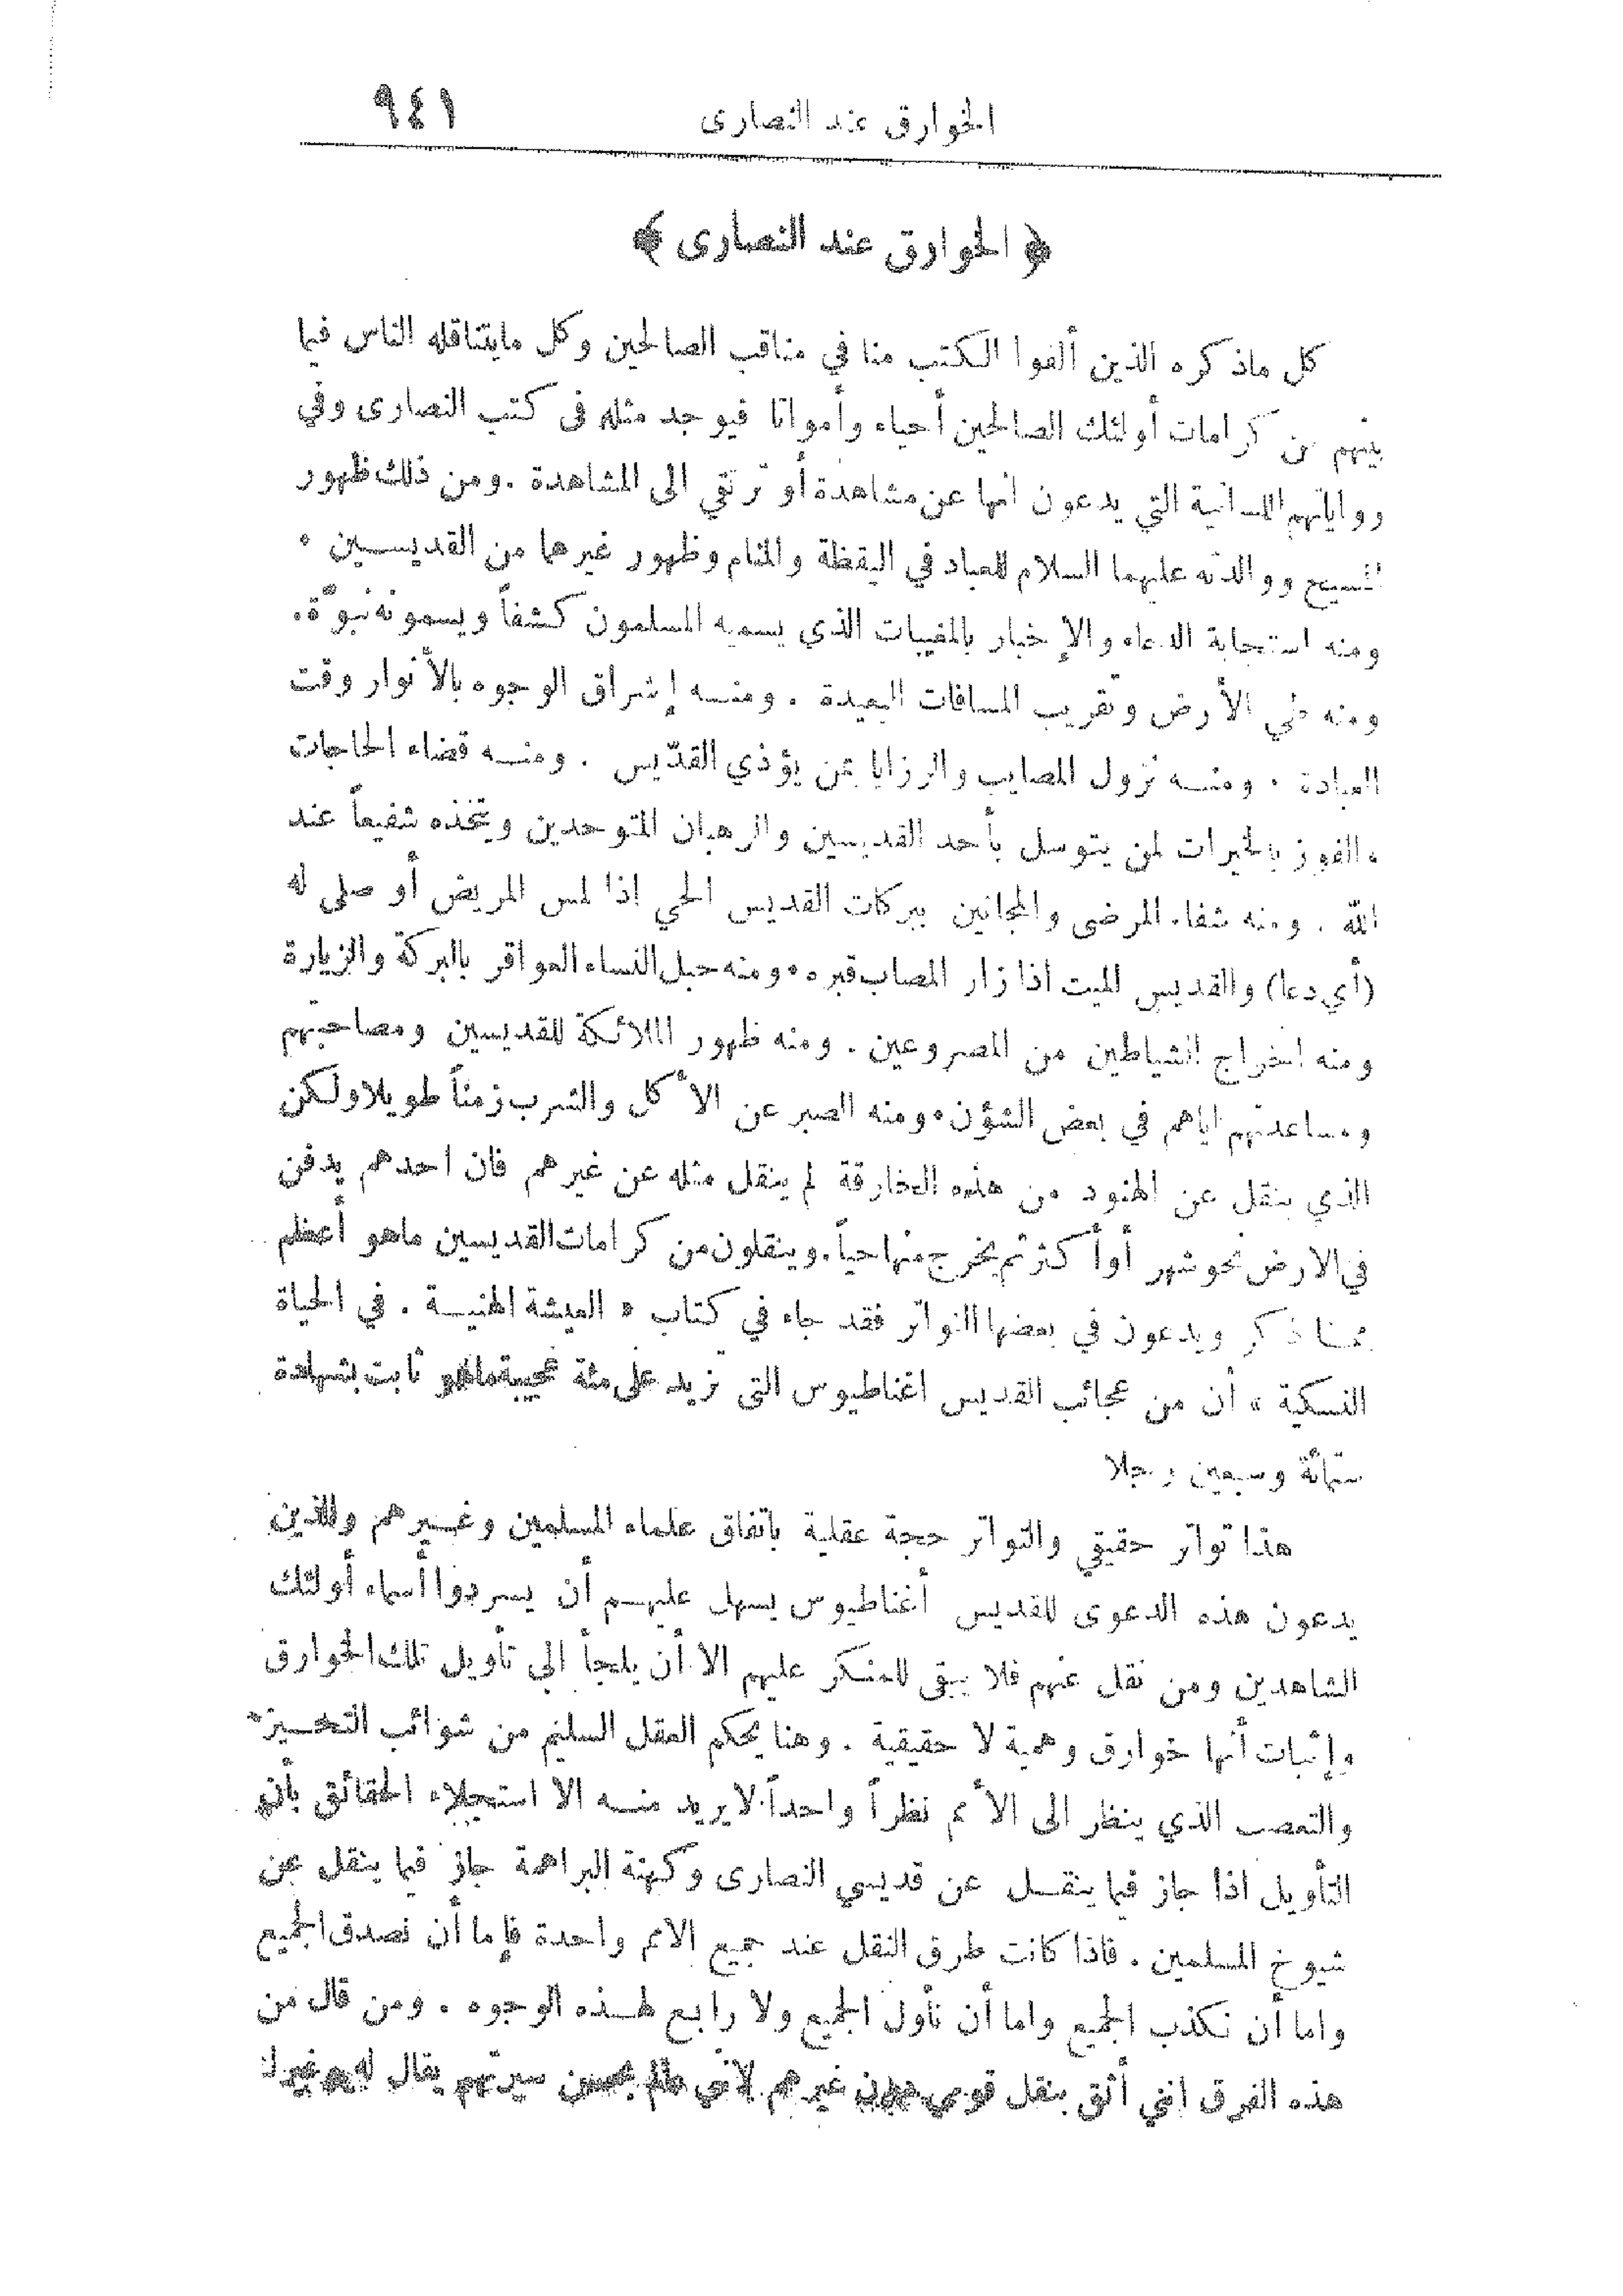 الخوارق عند النصارى ٩٤١
﴿ الخوارق عند النصارى ﴾
كل ماذكره الذين ألفوا الكتب منا في مناقب الصالحين وكل مايتناقله الناس فيما
بينهم من كرامات أولئك الصالحين أحياء وأمواتا فيوجد مثله فى كتب النصارى وفي
رواياتهم اللسانية التي يدعون انها عن مشاهدة أو ترتقي الى المشاهدة . ومن ذلك ظهور
المسيح ووالدته عليهما السلام للعباد في اليقظة والمنام وظهور غيرهما من القديسين .
ومنه استجابة الدعاء والإخبار بالمغيبات الذي يسميه المسلمون كشفاً ويسمونه نبوّة .
ومنه طي الأرض وتقريب المسافات البعيدة . ومنه إشراق الوجوه بالأنوار وقت
العبادة . ومنه نزول المصايب والرزايا بمن يؤذي القدّيس . ومنه قضاء الحاجات
والفوز بالخيرات لمن يتوسل بأحد القديسين والرهبان المتوحدين ويتخذه شفيعاً عند
الله . ومنه شفاء المرضى والمجانين ببركات القديس الحي اذا لمس المريض أو صلى له
(أي دعا) والقديس الميت اذا زار المصاب قبره . ومنه حبل النساء العواقر بالبركة والزيارة
ومنه اخراج الشياطين من المصروعين . ومنه ظهور الملائكة للقديسين ومصاحبتهم
ومساعدتهم اياهم في بعض الشؤن . ومنه الصبر عن الأكل والشرب زمناً طويلا ولكن
الذي ينقل عن الهنود من هذه الخارقة لم ينقل مثله عن غيرهم فان احدهم يدفن
في الارض نحو شهر أو أكثر ثم يخرج منها حياً . وينقلون من كرامات القديسين ماهو أعظم
مما ذكر ويدعون في بعضها التواتر فقد جاء في كتاب « العيشة الهنية . في الحياة
النسكية » أن من عجائب القديس اغناطيوس التى تزيد على مئة عجيبة ماهو ثابت بشهادة
ستمائة وسبعين رجلا
هذا تواتر حقيقي والتواتر حجة عقلية باتفاق علماء المسلمين وغيرهم والذين
يدعون هذه الدعوى للقديس أغناطيوس يسهل عليهم أن يسردوا أسماء أولئك
الشاهدين ومن نقل عنهم فلا يبقى للمنكر عليهم الا أن يلجأ الي تأويل تلك الخوارق
وإثبات أنها خوارق وهمية لا حقيقية . وهنا يحكم العقل السليم من شوائب التحيز
والتعصب الذي ينظر الى الأمم نظراً واحداً لا يريد منه الا استجلاء الحقائق بأن
التأويل اذا جاز فيما ينقل عن قديسي النصارى وكهنة البراهمة جاز فيما ينقل عن
شيوخ المسلمين . فاذا كانت طرق النقل عند جميع الامم واحدة فإما أن نصدق الجميع
واما أن نكذب الجميع واما أن نأول الجميع ولا رابع لهذه الوجوه . ومن قال من
هذه الفرق انني أثق بنقل قومي دون غيرهم لأنني بحسن سيرتهم يقال له